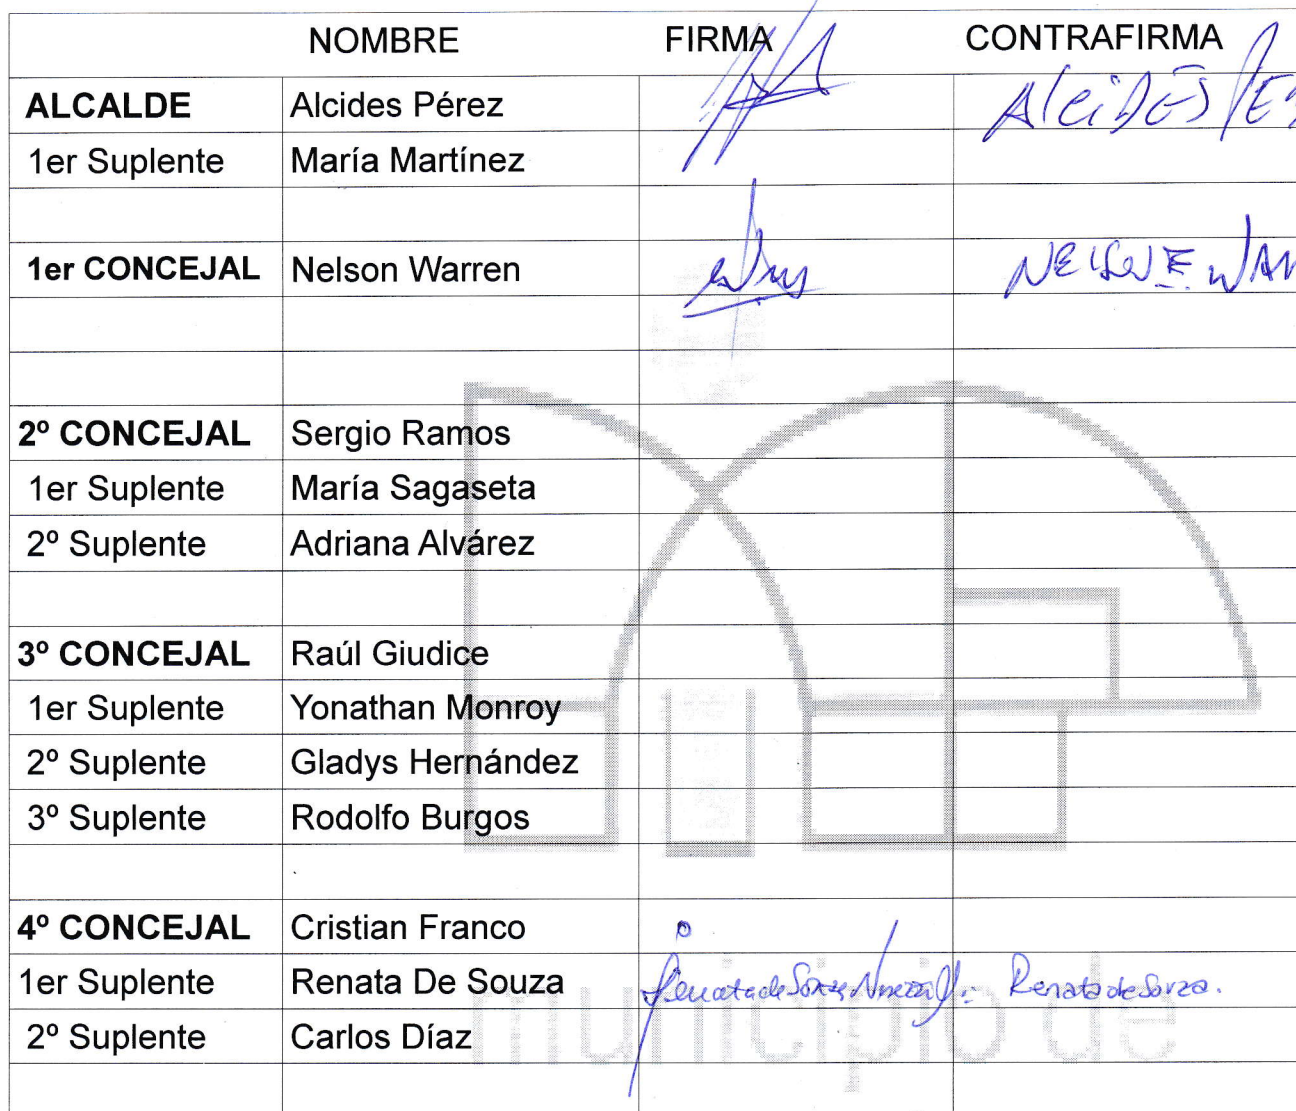 NOMBRE FIRMA CONTRAFIRMA
ALCALDE Alcides Pérez AlciDES
1er Suplente María Martínez
1er CONCEJAL Nelson Warren NELSON E.
2º CONCEJAL Sergio Ramos
1er Suplente María Sagaseta
2º Suplente Adriana Alvárez
3º CONCEJAL Raúl Giudice
1er Suplente Yonathan Monroy
2º Suplente Gladys Hernández
3º Suplente Rodolfo Burgos
4º CONCEJAL Cristian Franco
1er Suplente Renata De Souza Renata de Souza.
2º Suplente Carlos Díaz
municipio de